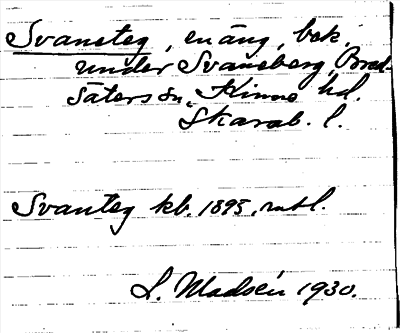 Svansteg, en äng, bek.
under Svaneberg, Bred-
säters sn, Kinne hd.
Skarab. l.
Svanteg kb. 1895, mtl.
L. Madsén 1930.